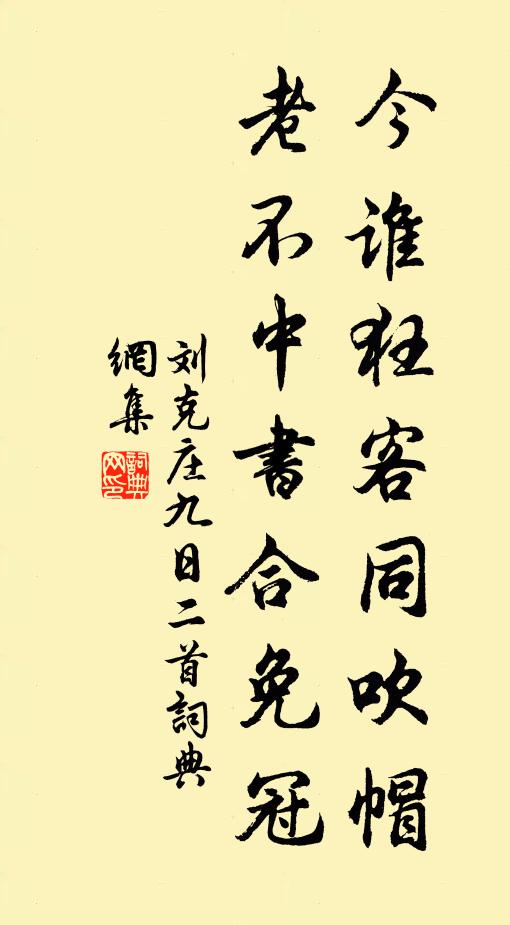 今谁狂客同吹帽
老不中書合免冠
刘克庄九日二首詞典
網集
詞典
网印